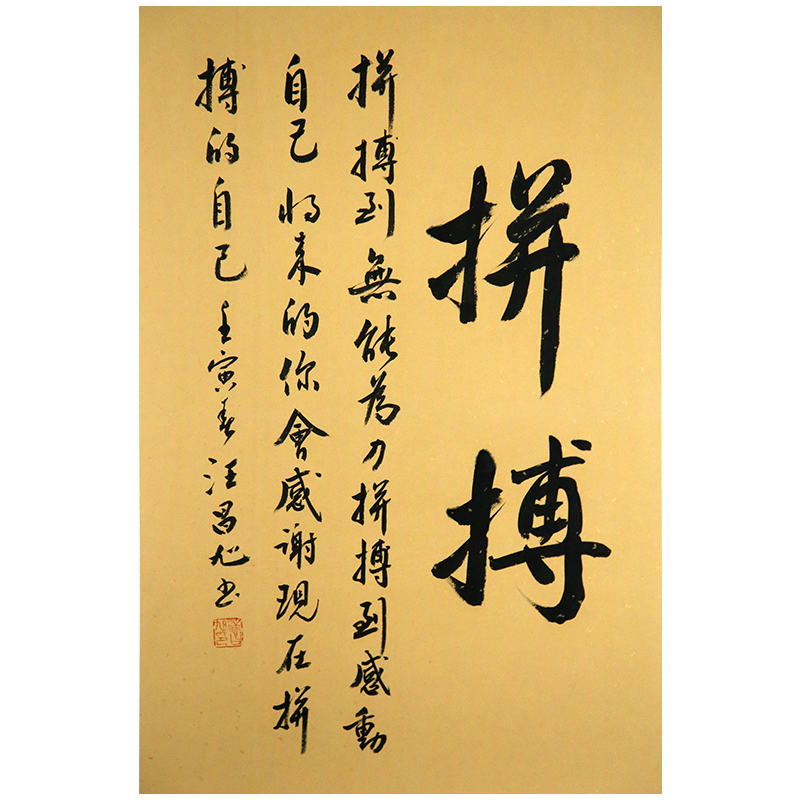 拼搏
拼搏到無能為力拼搏到感動
自己将来的你會感谢現在拼
搏的自己壬寅春汪昌书